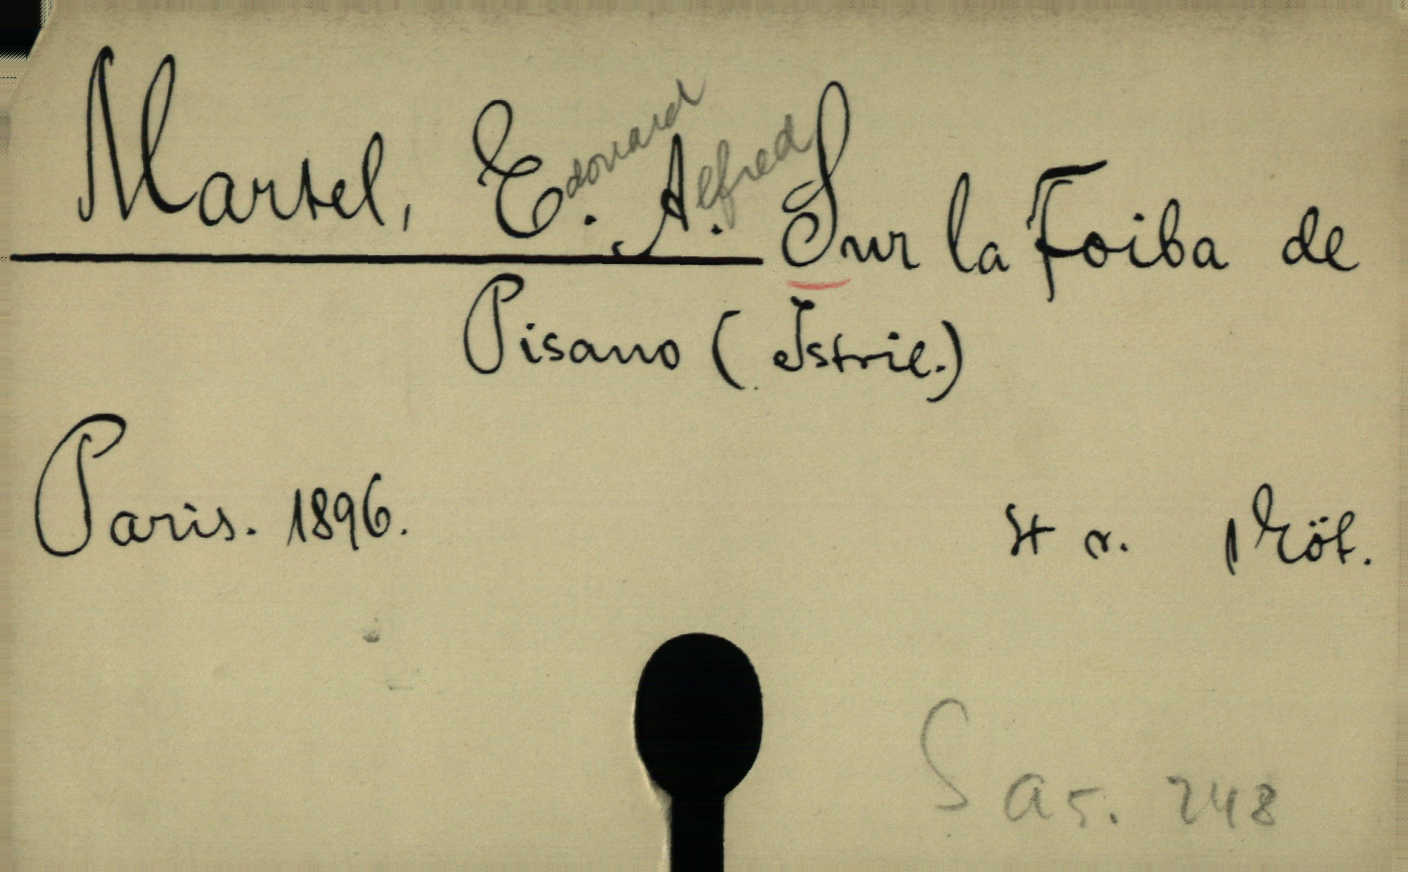 Martel, Edouard. Alfred. Sur la Foiba de
Pisano (Istrie.)
Paris. 1896. 4 r. 1 Köt.
Sa 5. 248